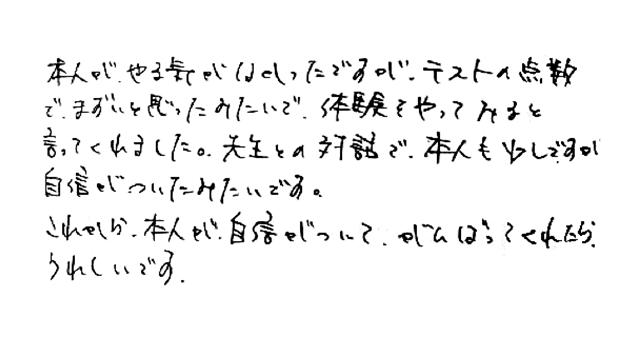 本人が、やる気がなかったですが、テストの点数
で、まずいと思ったみたいで、体験をやってみると
言ってくれました。先生との対話で、本人も少しですが
自信がついたみたいです。
これから、本人が、自信がついて、がんばってくれたら、
うれしいです。